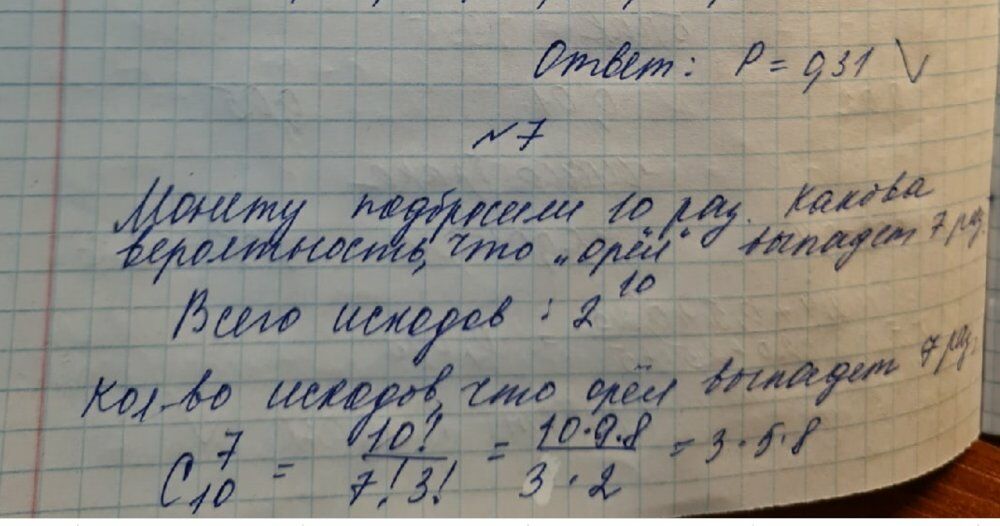 Ответ: P = 0,31 √
№ 7
Монету подбросили 10 раз. Какова
вероятность, что „орёл“ выпадет 7 раз.
Всего исходов : 2^10
Кол-во исходов, что орёл выпадет 7 раз.
C_10^7 = 10!/(7!3!) = (10·9·8)/(3·2) = 3·5·8